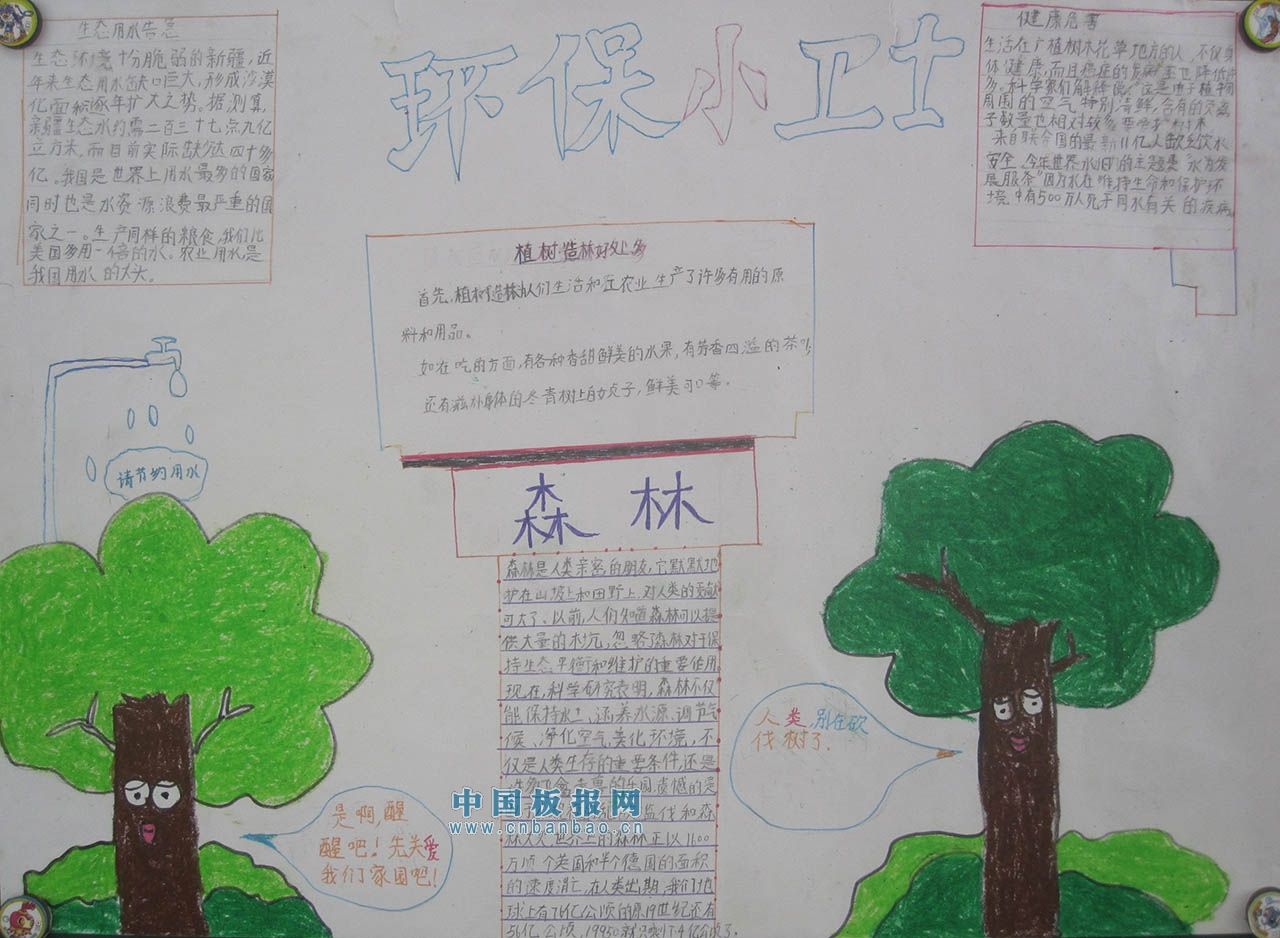 环保小卫士
生态用水告急
生态环境十分脆弱的新疆，近
年来生态用水缺口巨大，形成沙漠
化面积逐年扩大之势。据测算，
新疆生态水约需二百三十七点九亿
立方米，而目前实际缺少达四十多
亿。我国是世界上用水最多的国家
同时也是水资源浪费最严重的国
家之一。生产同样的粮食，我们比
美国多用一倍的水。农业用水是
我国用水的大头。
健康危害
生活在广植树木花草地方的人，不仅身
体健康，而且癌症的发病
多。科学家们解释说：这是由于植物
周围的空气特别洁鲜，含有的负离
子数量也相对较多
来自联合国的最新11亿人缺乏饮水
安全，今年世界水日的主题是“水为发
展服务”因为水在维持生命和保护环
境，中有500万人死于用水有关的疾病
植树造林好处多
首先，植树造林为人们生活和在农业生产了许多有用的原
料和用品。
如在吃的方面，有各种香甜鲜美的水果，有芳香四溢的茶叶，
还有滋补身体的冬青树上的女贞子，鲜美可口等。
请节约用水
森林
森林是人类亲密的朋友，它默默地
护在山坡上和田野上，对人类的贡献
可大了。以前，人们知道森林可以提
供大量的木
，忽略了森林对于保
持生态平衡和维护的重要作用
现在，科学研究表明，森林不仅
能保持水土、涵养水源、调节气
候、净化空气、美化环境，不
仅是人类生存的重要条件，还是
乐园，遗憾的是
滥伐和森
林火灾，世界上的森林正以1100
万顷个英国和半个德国的面积
的速度消亡，在人类出期，我们地
球上有76亿公顷的原19世纪还有
56亿公顷，
人类，别在砍
伐树了。
是啊，醒
醒吧！先关爱
我们家园吧！
中国板报网
www.cnbanbao.cn